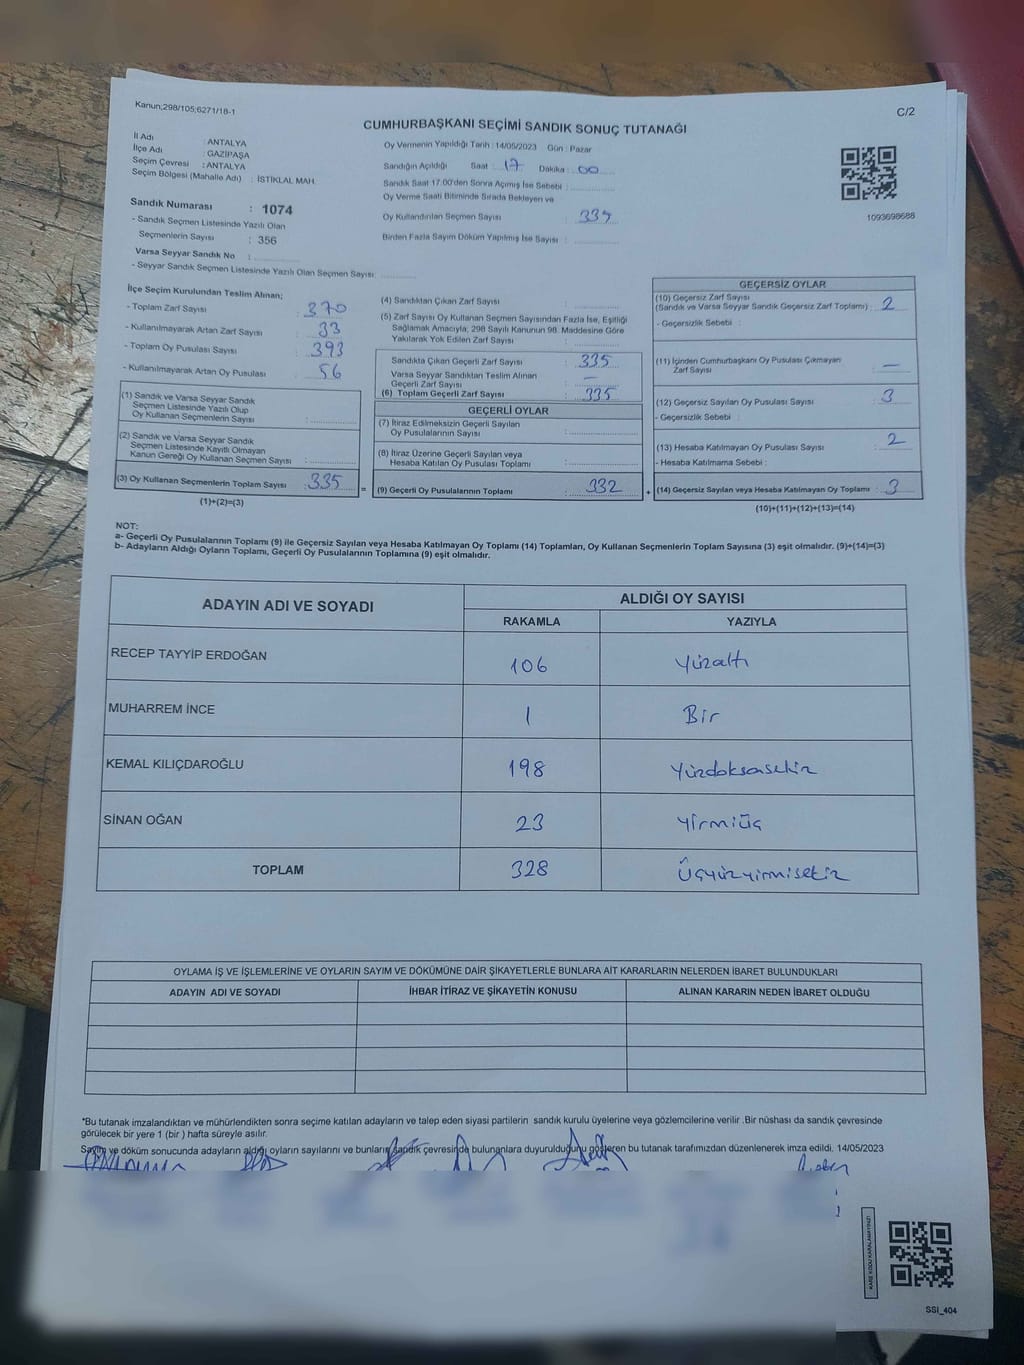 Kanun;298/105;6271/18-1
C/2
CUMHURBAŞKANI SEÇİMİ SANDIK SONUÇ TUTANAĞI
İl Adı : ANTALYA
İlçe Adı : GAZİPAŞA
Seçim Çevresi : ANTALYA
Seçim Bölgesi (Mahalle Adı) : İSTİKLAL MAH.
Sandık Numarası : 1074
- Sandık Seçmen Listesinde Yazılı Olan
Seçmenlerin Sayısı : 356
Varsa Seyyar Sandık No :
- Seyyar Sandık Seçmen Listesinde Yazılı Olan Seçmen Sayısı:
Oy Vermenin Yapıldığı Tarih : 14/05/2023 Gün : Pazar
Sandığın Açıldığı Saat : 17 Dakika : 00
Sandık Saat 17:00'den Sonra Açımış İse Sebebi :
Oy Verme Saati Bitiminde Sırada Bekleyen ve
Oy Kullandırılan Seçmen Sayısı : 335
Birden Fazla Sayım Döküm Yapılmış İse Sayısı :
1093698688
İlçe Seçim Kurulundan Teslim Alınan;
- Toplam Zarf Sayısı : 370
- Kullanılmayarak Artan Zarf Sayısı : 33
- Toplam Oy Pusulası Sayısı : 393
- Kullanılmayarak Artan Oy Pusulası : 56
(1) Sandık ve Varsa Seyyar Sandık
Seçmen Listesinde Yazılı Olup
Oy Kullanan Seçmenlerin Sayısı :
(2) Sandık ve Varsa Seyyar Sandık
Seçmen Listesinde Kayıtlı Olmayan
Kanun Gereği Oy Kullanan Seçmen Sayısı :
(3) Oy Kullanan Seçmenlerin Toplam Sayısı : 335
(1)+(2)=(3)
(4) Sandıktan Çıkan Zarf Sayısı :
(5) Zarf Sayısı Oy Kullanan Seçmen Sayısından Fazla İse, Eşitliği
Sağlamak Amacıyla; 298 Sayılı Kanunun 98. Maddesine Göre
Yakılarak Yok Edilen Zarf Sayısı :
Sandıkta Çıkan Geçerli Zarf Sayısı : 335
Varsa Seyyar Sandıktan Teslim Alınan
Geçerli Zarf Sayısı : –
(6) Toplam Geçerli Zarf Sayısı : 335
GEÇERLİ OYLAR
(7) İtiraz Edilmeksizin Geçerli Sayılan
Oy Pusulalarının Sayısı :
(8) İtiraz Üzerine Geçerli Sayılan veya
Hesaba Katılan Oy Pusulası Toplamı :
= (9) Geçerli Oy Pusulalarının Toplamı : 332 +
GEÇERSİZ OYLAR
(10) Geçersiz Zarf Sayısı
(Sandık ve Varsa Seyyar Sandık Geçersiz Zarf Toplamı) : 2
- Geçersizlik Sebebi :
(11) İçinden Cumhurbaşkanı Oy Pusulası Çıkmayan
Zarf Sayısı : –
(12) Geçersiz Sayılan Oy Pusulası Sayısı : 3
- Geçersizlik Sebebi :
(13) Hesaba Katılmayan Oy Pusulası Sayısı : 2
- Hesaba Katılmama Sebebi :
(14) Geçersiz Sayılan veya Hesaba Katılmayan Oy Toplamı : 3
(10)+(11)+(12)+(13)=(14)
NOT:
a- Geçerli Oy Pusulalarının Toplamı (9) ile Geçersiz Sayılan veya Hesaba Katılmayan Oy Toplamı (14) Toplamları, Oy Kullanan Seçmenlerin Toplam Sayısına (3) eşit olmalıdır. (9)+(14)=(3)
b- Adayların Aldığı Oyların Toplamı, Geçerli Oy Pusulalarının Toplamına (9) eşit olmalıdır.
ADAYIN ADI VE SOYADI
ALDIĞI OY SAYISI
RAKAMLA YAZIYLA
RECEP TAYYİP ERDOĞAN 106 Yüzaltı
MUHARREM İNCE 1 Bir
KEMAL KILIÇDAROĞLU 198 Yüzdoksasekiz
SİNAN OĞAN 23 Yirmiüç
TOPLAM 328 Üçyüzyirmisekiz
OYLAMA İŞ VE İŞLEMLERİNE VE OYLARIN SAYIM VE DÖKÜMÜNE DAİR ŞİKAYETLERLE BUNLARA AİT KARARLARIN NELERDEN İBARET BULUNDUKLARI
ADAYIN ADI VE SOYADI
İHBAR İTİRAZ VE ŞİKAYETİN KONUSU
ALINAN KARARIN NEDEN İBARET OLDUĞU
*Bu tutanak imzalandıktan ve mühürlendikten sonra seçime katılan adayların ve talep eden siyasi partilerin sandık kurulu üyelerine veya gözlemcilerine verilir .Bir nüshası da sandık çevresinde
görülecek bir yere 1 (bir ) hafta süreyle asılır.
Sayım ve döküm sonucunda adayların aldığı oyların sayılarını ve bunların sandık çevresinde bulunanlara duyurulduğunu gösteren bu tutanak tarafımızdan düzenlenerek imza edildi. 14/05/2023
KARE KODU KARALAMAYINIZ!
SSI_404